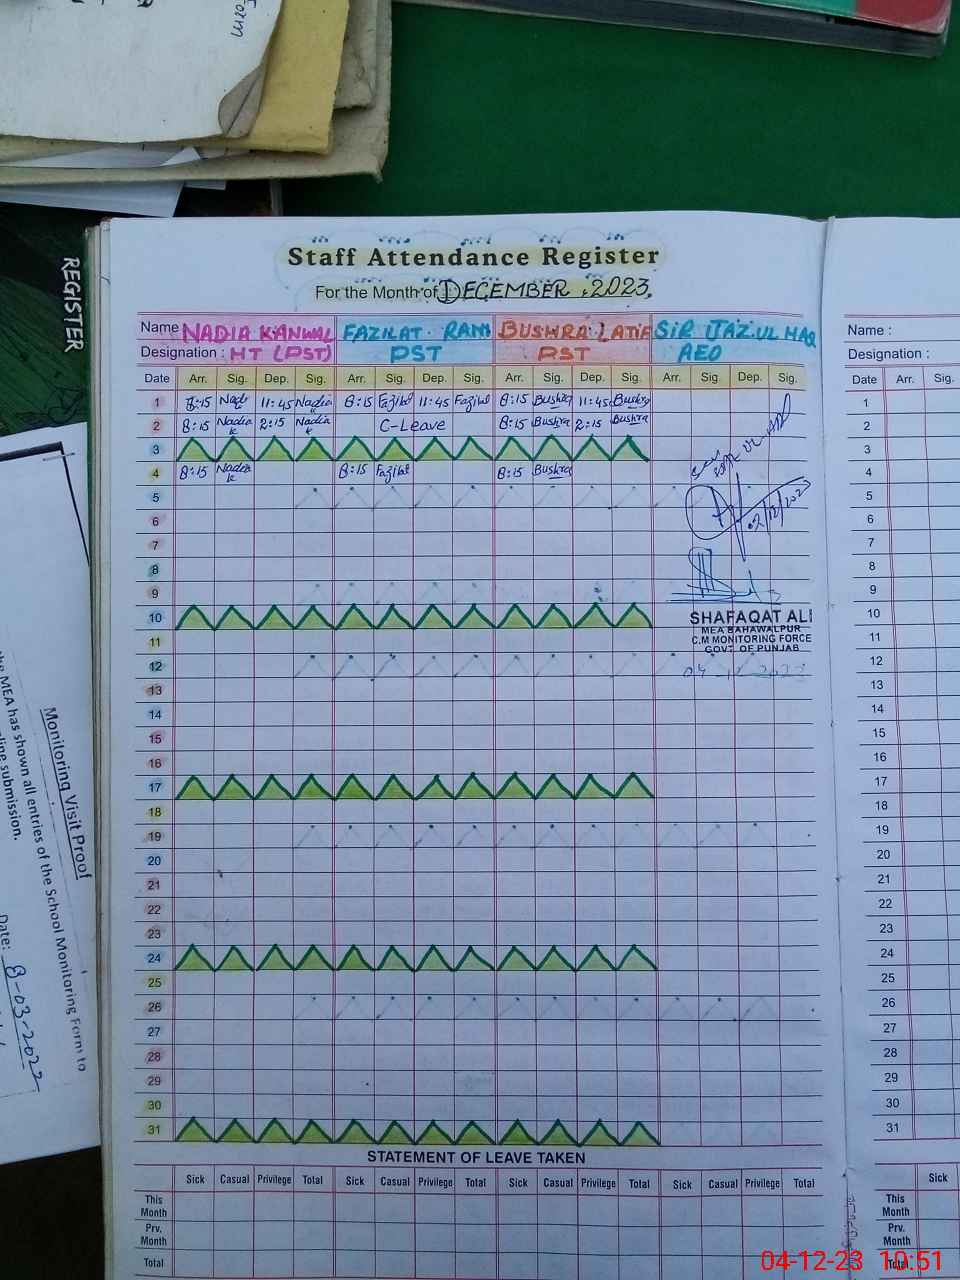 REGISTER
Staff Attendance Register
For the Month of DECEMBER, 2023,
Name NADIA KANWAL FAZILAT RANI BUSHRA LATIF SIR IJAZ.UL HAQ
Designation : HT (PST) PST PST AEO
Date Arr. Sig. Dep. Sig. Arr. Sig. Dep. Sig. Arr. Sig. Dep. Sig. Arr. Sig. Dep. Sig.
1 8:15 Nadia 11:45 Nadia 8:15 Fazilat 11:45 Fazilat 8:15 Bushra 11:45 Bushra
2 8:15 Nadia 2:15 Nadia C-Leave 8:15 Bushra 2:15 Bushra
3
4 8:15 Nadia 8:15 Fazilat 8:15 Bushra
5
6
7
8
9
10
11
12
13
14
15
16
17
18
19
20
21
22
23
24
25
26
27
28
29
30
31
02/12/2023
SHAFAQAT ALI
MEA BAHAWALPUR
C.M MONITORING FORCE
GOVT OF PUNJAB
04-12-2023
STATEMENT OF LEAVE TAKEN
Sick Casual Privilege Total Sick Casual Privilege Total Sick Casual Privilege Total Sick Casual Privilege Total
This Month
Prv. Month
Total
Name :
Designation :
Date Arr. Sig.
1
2
3
4
5
6
7
8
9
10
11
12
13
14
15
16
17
18
19
20
21
22
23
24
25
26
27
28
29
30
31
Sick
This Month
Prv. Month
Total
Monitoring Visit Proof
the MEA has shown all entries of the School Monitoring Form to
submission.
Date: 8-03-2022
04-12-23 10:51